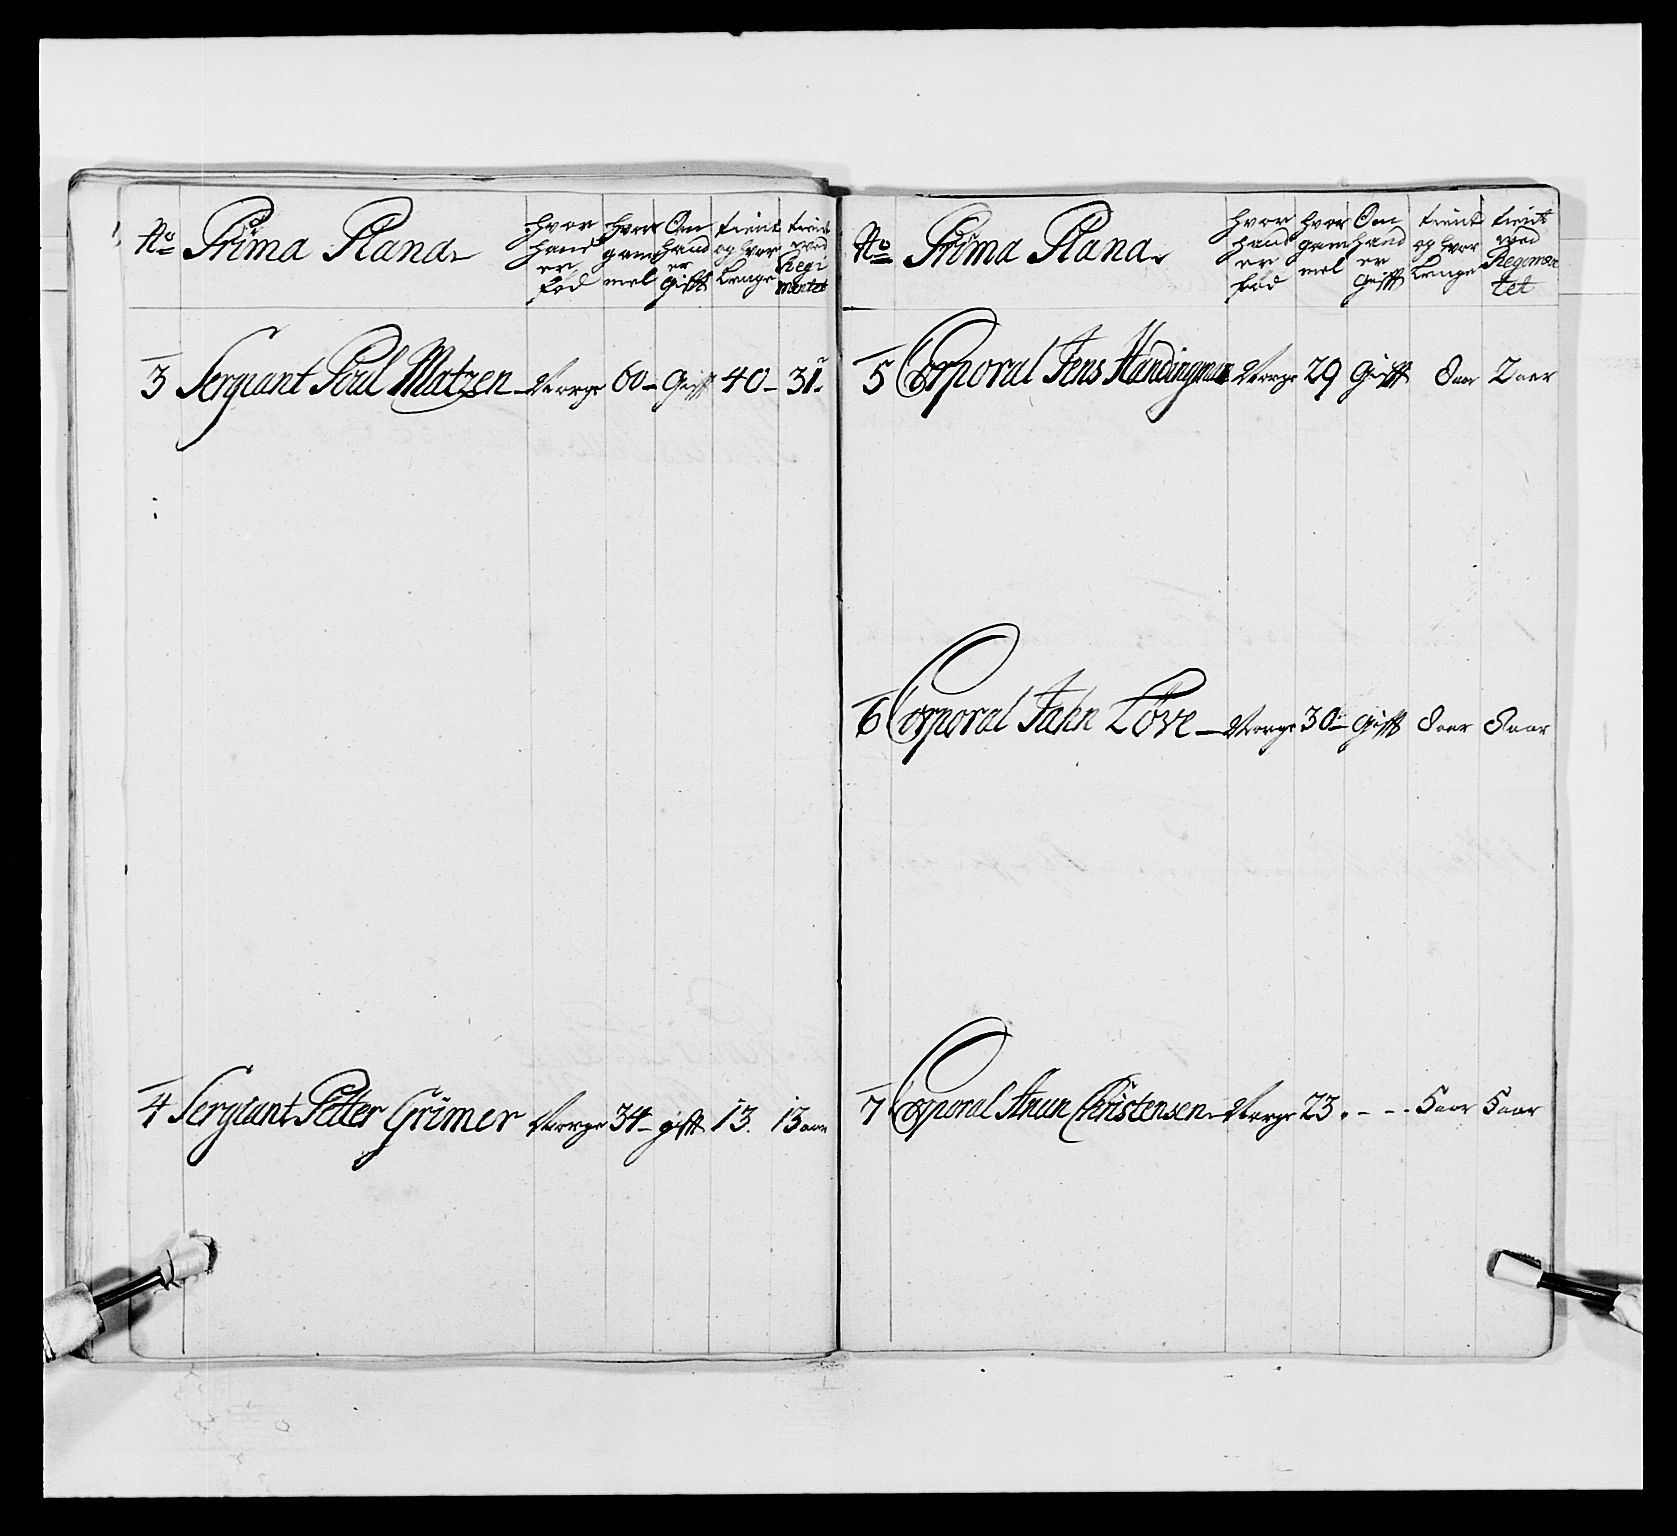 No Prima Plana
hvor hand er fød
hvor gammel
Om hand er gifft
tient og hvor lenge
tient ved Regimentet
3 Sergiant Poul Matzen Norge 60 Gifft 40 31
4 Sergiant Petter Grimer Norge 34 gifft 13. 13 aar
No Prima Plana
hvor hand er fød
hvor gammel
Om hand er gifft
tient og hvor lenge
tient ved Regemen tet
5 Corporal Jens Norge 29 Gifft 8 aar 2 aar
6 Corporal Jahn Løve Norge 30 Gifft 8 aar 8 aar
7 Corporal Christensen Norge 23 5 aar 5 aar